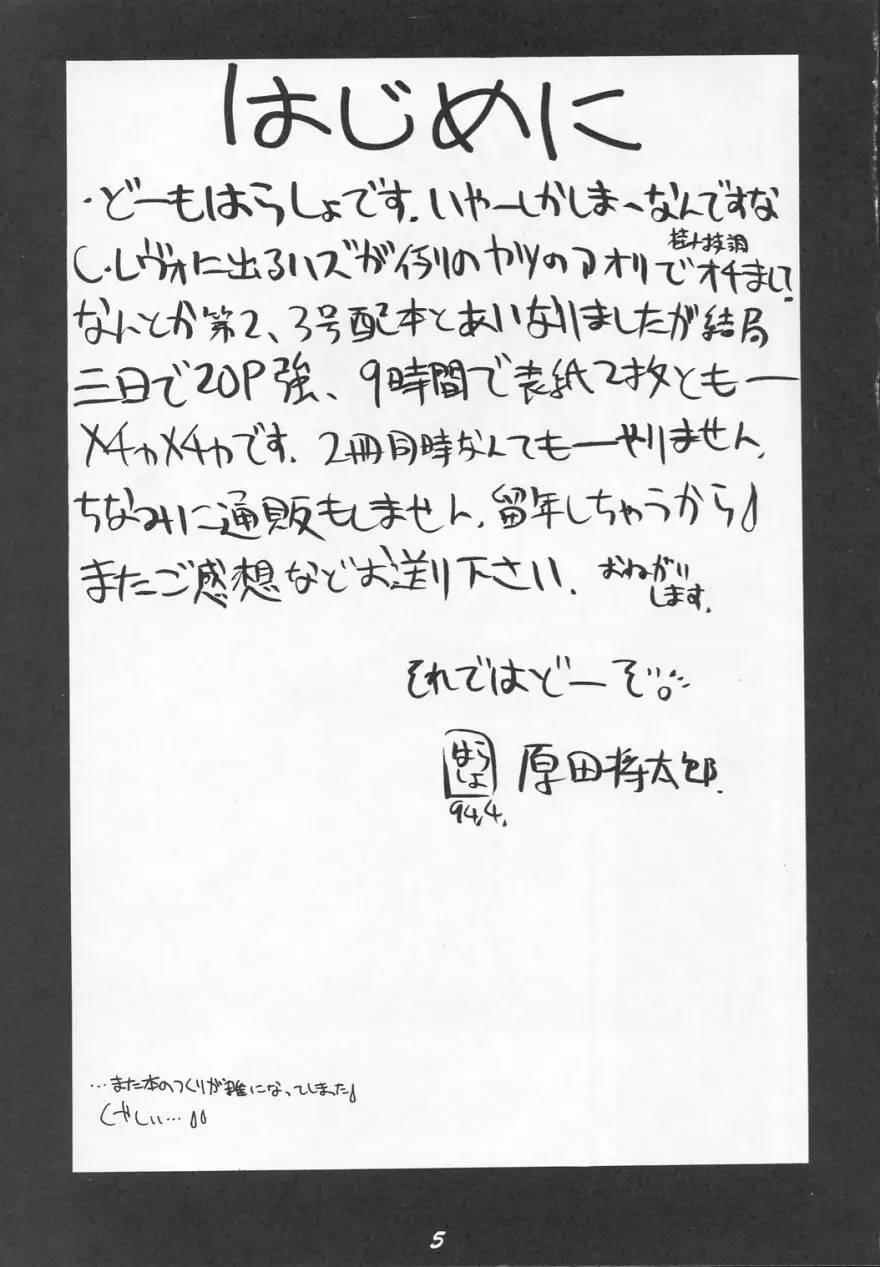 はじめに
・どーもはらしょです。いやーしかしまーなんですな
C・レヴォに出るハズが例のヤツのアオリでオチまして
なんとか第2、3号配本とあいなりましたが結局
三日で20P強、9時間で表紙2枚ともー
メチャメチャです。2冊同時なんてもーやりません。
ちなみに通販もしません。留年しちゃうから
またご感想などお送り下さい。おねがい
します。
それではどーぞ。
はらしょ 原田将太郎
94.4.
…また本のつくりが雑になってしまった
くやしい…
5